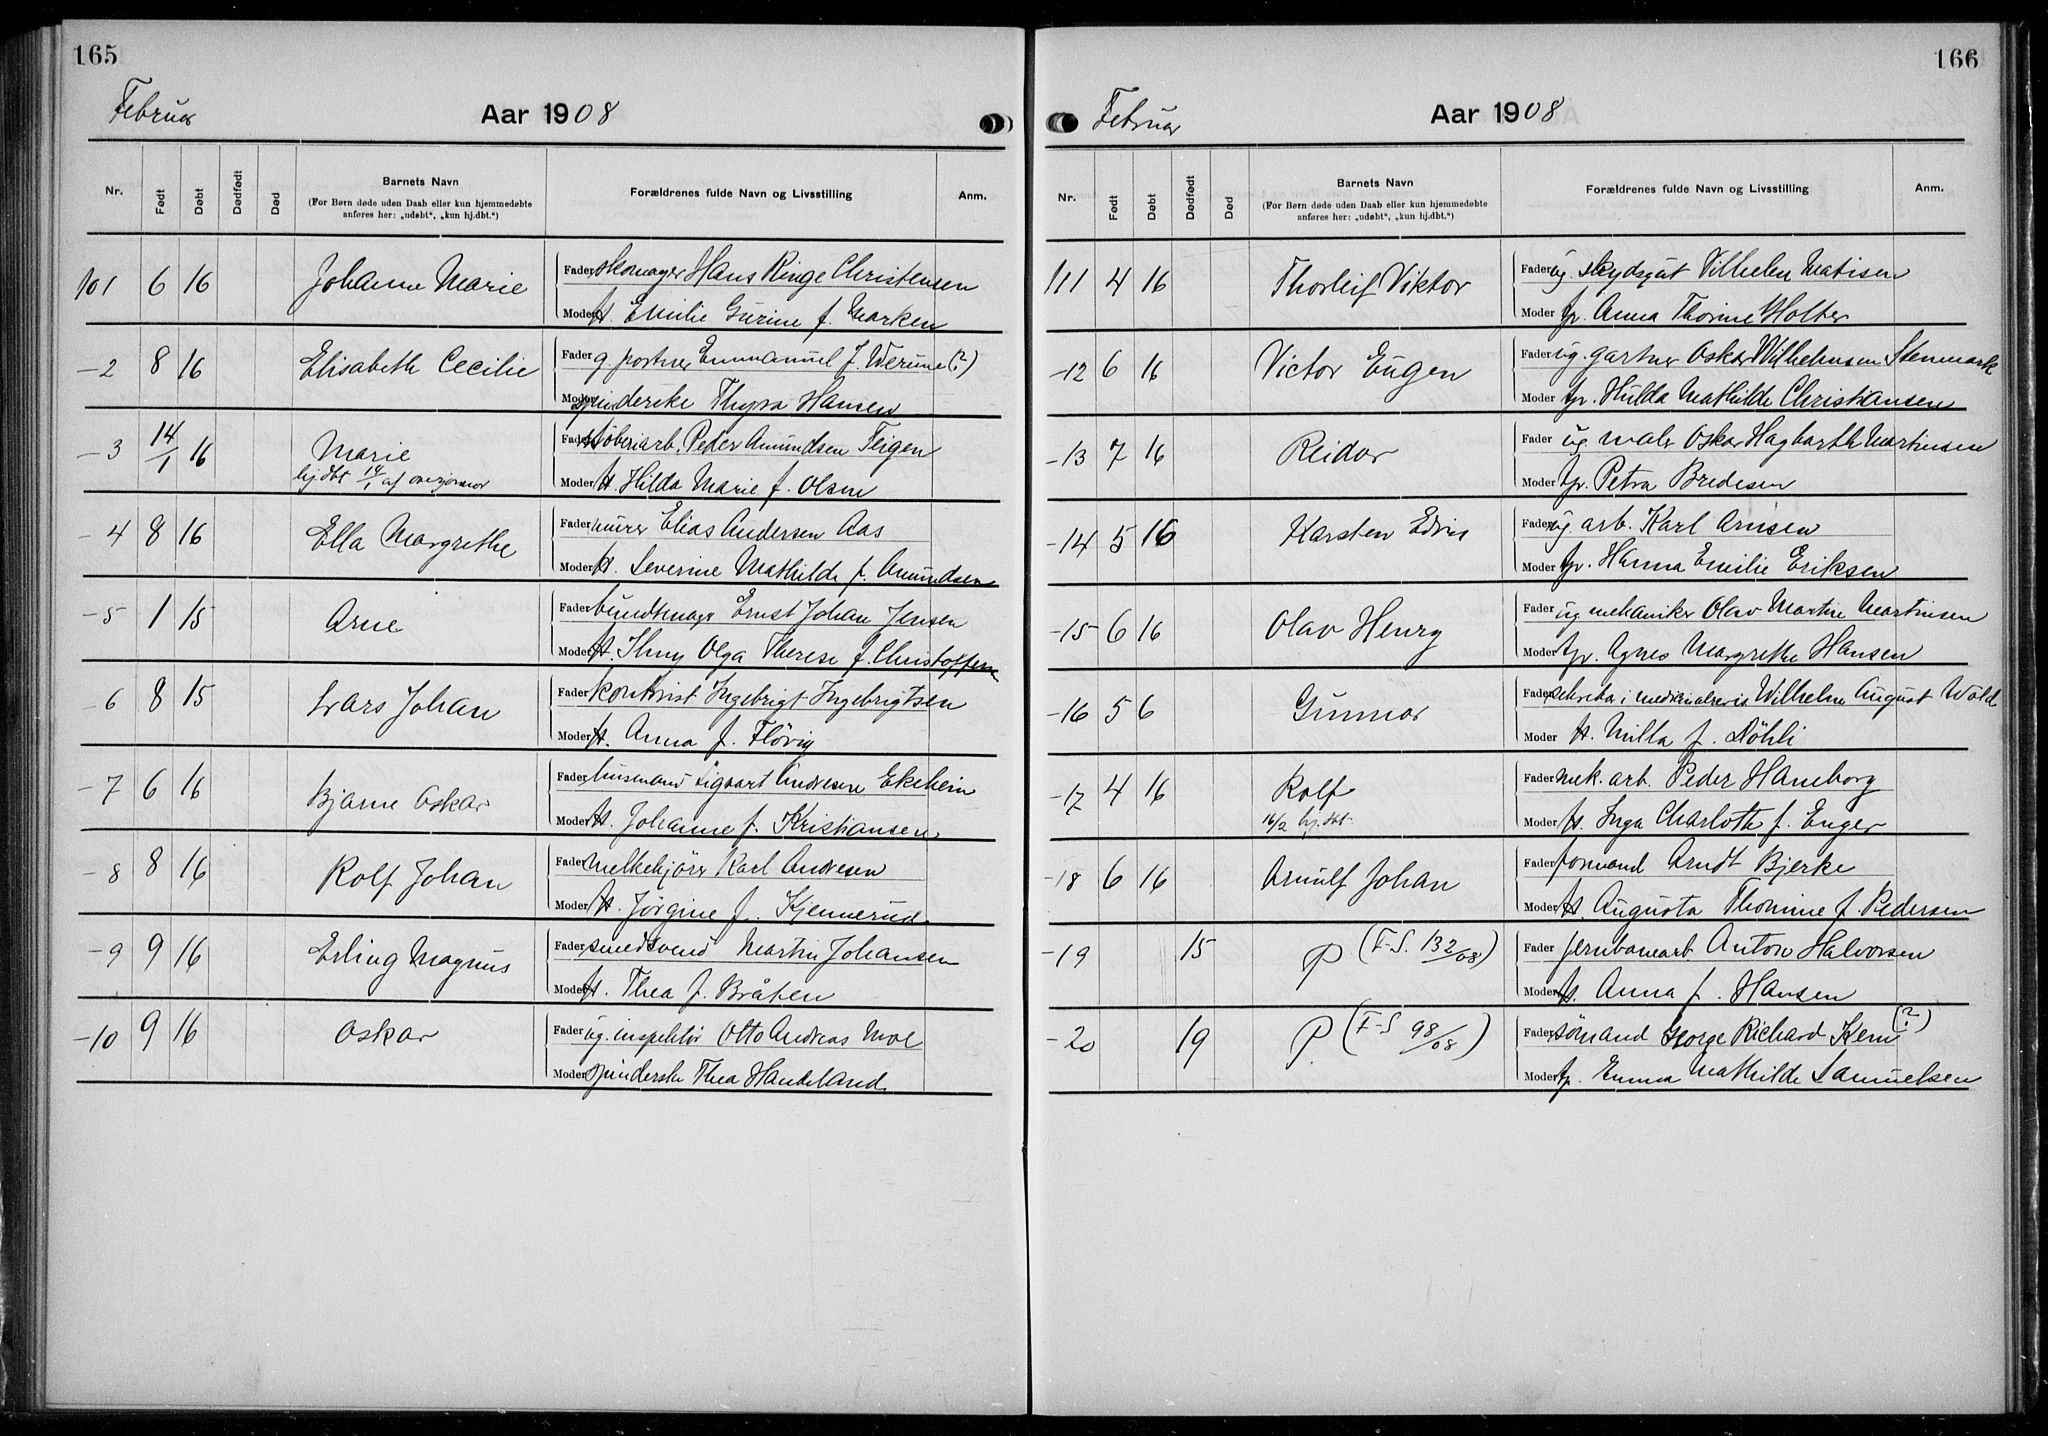 165
Februar
Aar 1908
Nr. Født Døbt Dødfødt Død Barnets Navn Forældrenes fulde Navn og Livsstilling Anm.
(For Børn døde uden Daab eller kun hjemmedøbte
anføres her: „udøbt“, „kun hj.dbt.“)
101 6 16 Johanne Marie Fader skomager Hans Ringe Christensen
Moder H. Emilie Gurine f. Marken
-2 8 16 Elisabeth Cecilie Fader g. portner Emmanuel J. Werume (?)
Moder spinderske Thyra Hansen
-3 14/1 16 Marie Fader støberiarb. Peder Amundsen Teigen
hj.dbt 14/1 af Moder H. Hilda Marie f. Olsen
-4 8 16 Ella Margrethe Fader murer Elias Andersen Aas
Moder H. Severine Mathilde f. Amundsen
-5 1 15 Arne Fader bundtmager Ernst Johan Jensen
Moder H. Olga Therese f. Christoffersen
-6 8 15 Lars Johan Fader kontorist Ingebrigt Ingebrigtsen
Moder H. Anna f. Fløvig
-7 6 16 Bjarne Oskar Fader husmand Sigvart Andresen Ekeheim
Moder H. Johanne f. Kristiansen
-8 8 16 Rolf Johan Fader melkekjører Karl Andresen
Moder H. Jørgine f. Kjennerud
-9 9 16 Erling Magnus Fader smedsvend Martin Johansen
Moder H. Thea f. Bråten
-10 9 16 Oskar Fader ug. inspektør Otto Andreas Moe
Moder spinderske Thea Haukeland
166
Februar
Aar 1908
Nr. Født Døbt Dødfødt Død Barnets Navn Forældrenes fulde Navn og Livsstilling Anm.
(For Børn døde uden Daab eller kun hjemmedøbte
anføres her: „udøbt“, „kun hj.dbt.“)
111 4 16 Thorleif Viktor Fader ug. skydsgut Vilhelm Matisen
Moder tp. Anna Thorine Holter
-12 6 16 Victor Eugen Fader ug. gartner Oskar Wilhelmsen Stenmark
Moder tp. Hulda Mathilde Christiansen
-13 7 16 Reidar Fader ug maler Oskar Hagbarth Martinsen
Moder tp. Petra Bredesen
-14 5 16 Karsten Edvin Fader ug arb. Karl Arnsen
Moder tp. Hanna Emilie Eriksen
-15 6 16 Olav Henry Fader ug mekaniker Olav Martin Martinsen
Moder tp. Agnes Margrethe Hansen
-16 5 6 Gunnar Fader sekretær i medicinalvæs. Wilhelm August Wold
Moder H. Milla f. Døhli
-17 4 16 Rolf Fader mek. arb. Peder Haneborg
16/2 hj.dbt. Moder H. Inga Charlotte f. Enger
-18 6 16 Arnulf Johan Fader formand Arndt Bjerke
Moder H. Augusta Thomine f. Pedersen
-19 15 P (F-S. 132/08) Fader jernbanearb. Anton Halvorsen
Moder H. Anna f. Hansen
-20 19 P (F-S 98/08) Fader sømand George Richard Kem (?)
Moder tp. Emma Mathilde Samuelsen